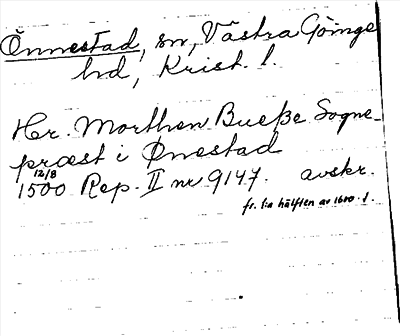 Önnestad, sn, Västra Göinge
hd, Krist. l.
Hr. Morthen Bueße Sogne-
præst i Ønestad
12/8
1500 Rep. II nr 9147. avskr.
fr. 1:a hälften av 1600-t.